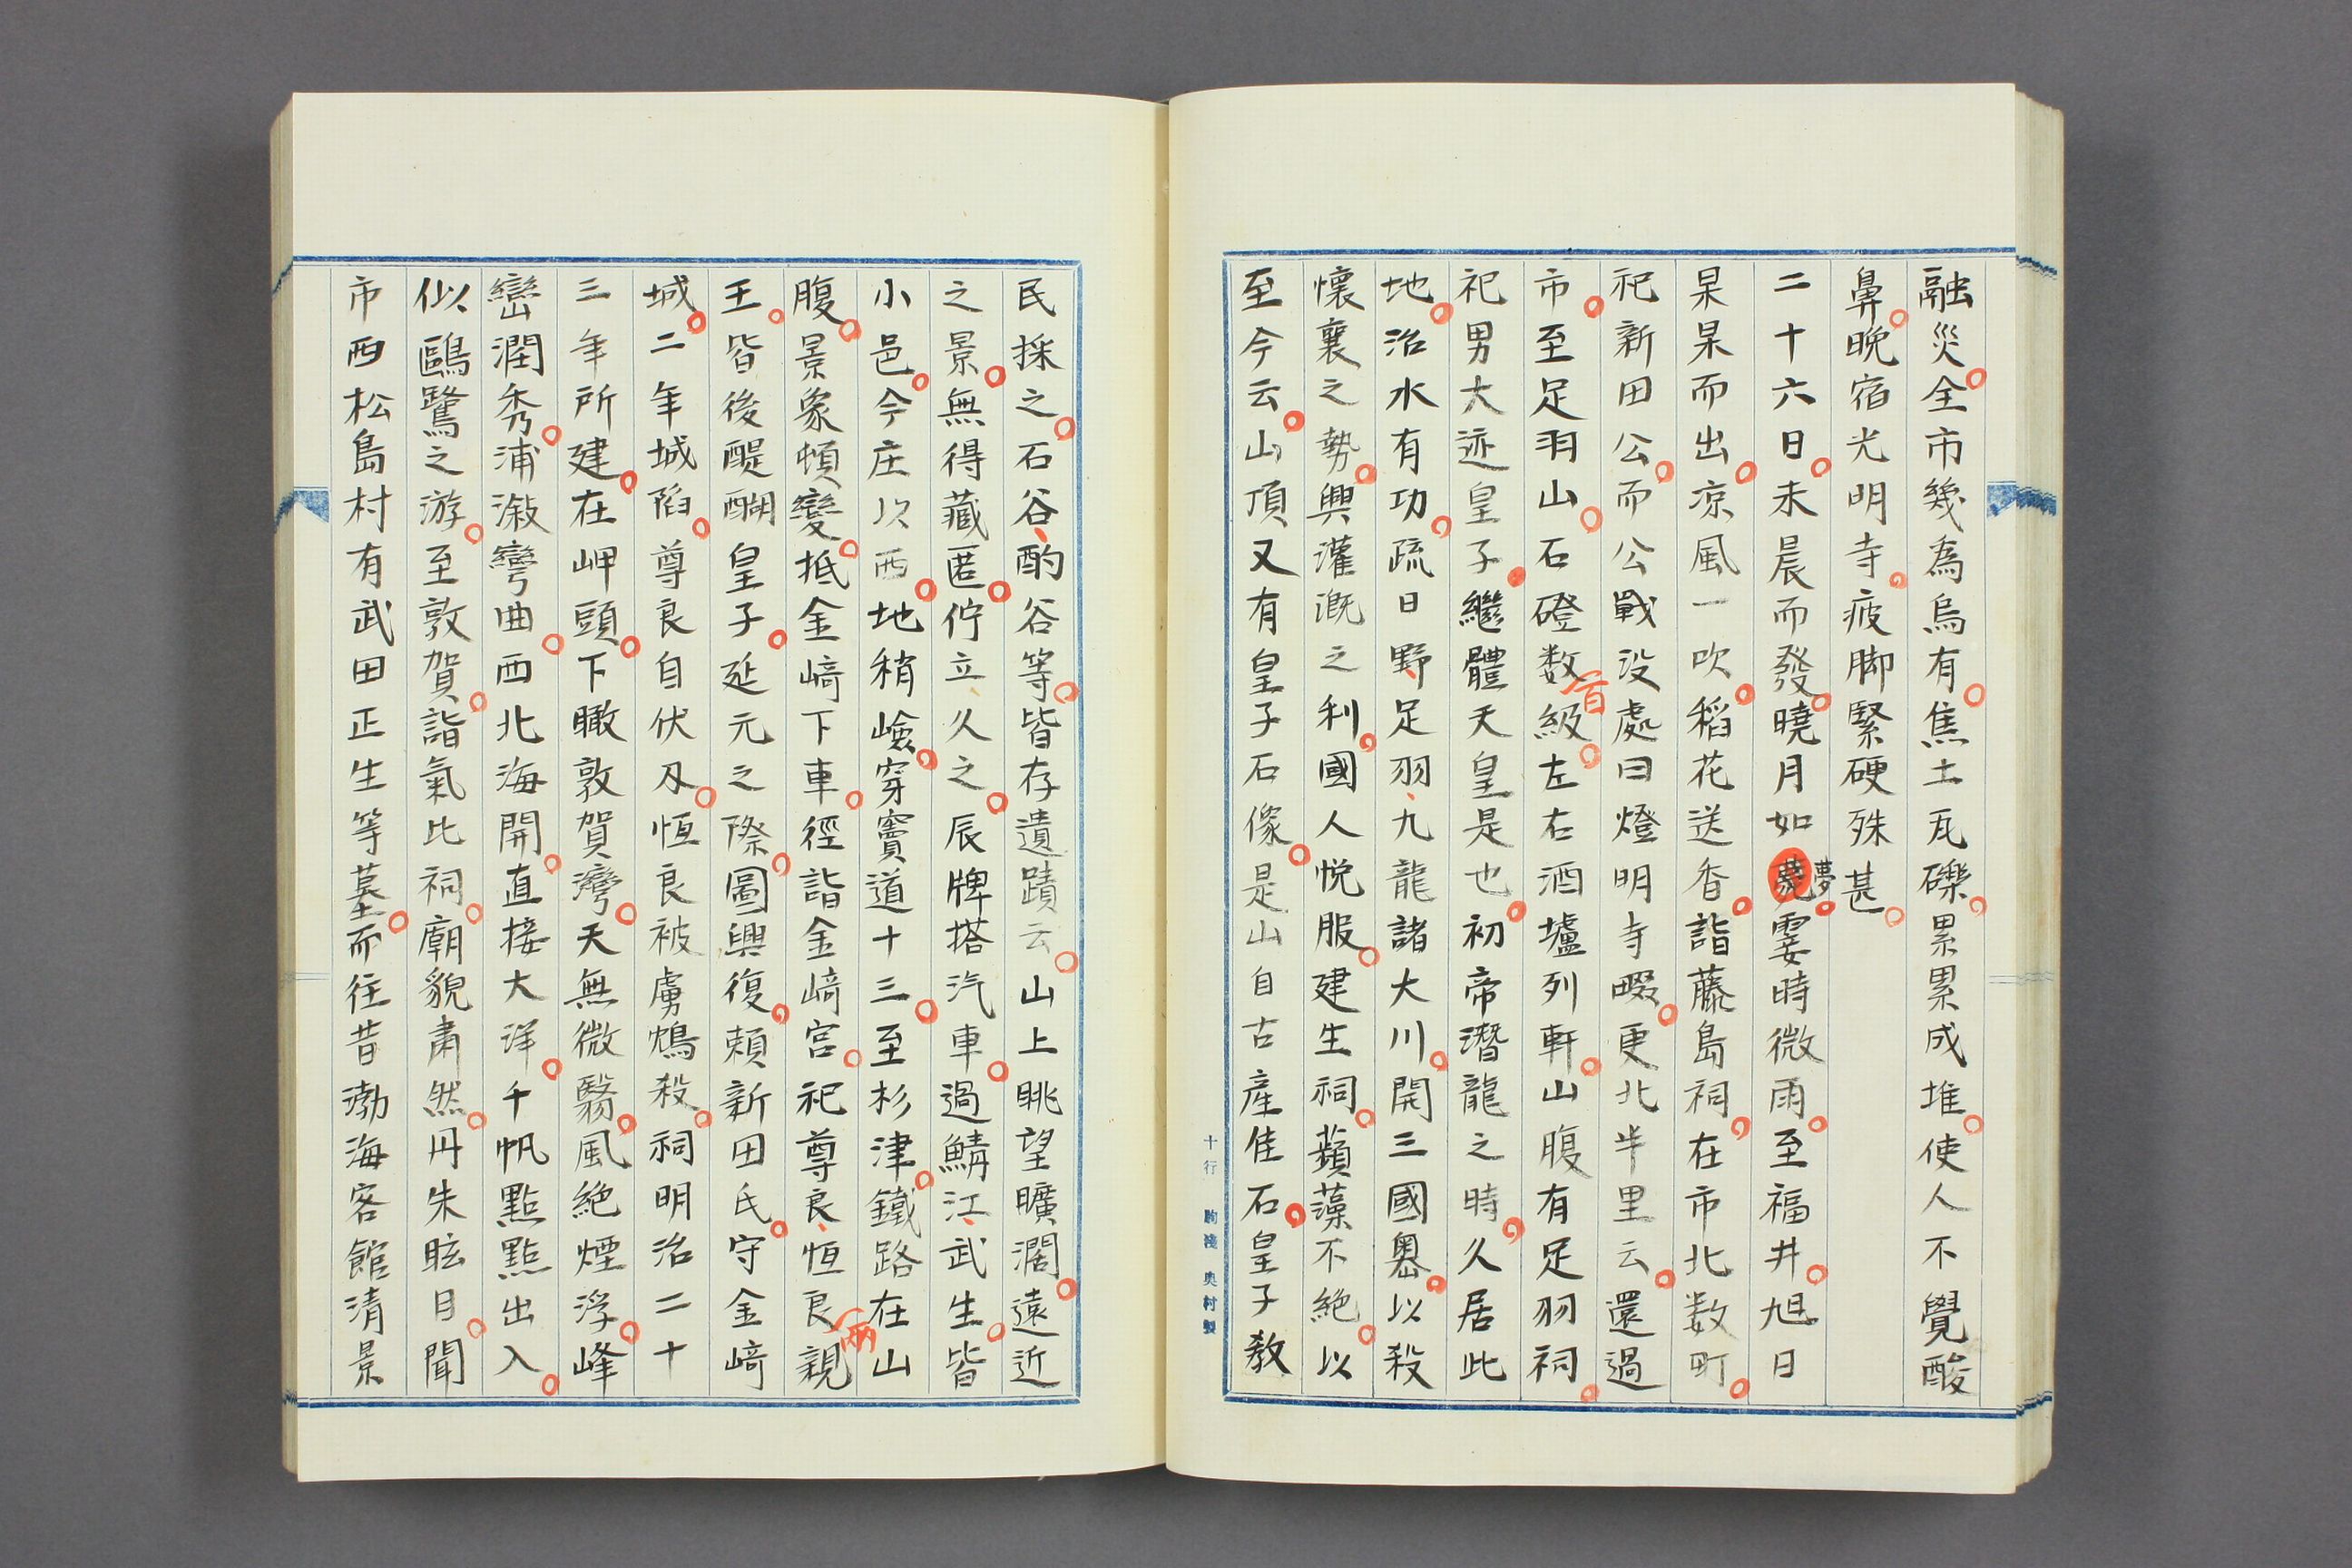 融災全市幾為烏有焦土瓦礫累累成堆使人不覺酸
鼻晩宿光明寺疲脚緊硬殊甚
二十六日未晨而發曉月如夢霎時微雨至福井旭日
杲杲而出凉風一吹稻花送香詣藤島祠在市北数町
祀新田公而公戰没處曰燈明寺畷更北半里云還過
市至足羽山石磴数百級左右酒壚列軒山腹有足羽祠
祀男大迹皇子繼體天皇是也初帝潛龍之時久居此
地治水有功疏日野足羽九龍諸大川開三國奧以殺
懷襄之勢興灌漑之利國人悦服建生祠蘋藻不絶以
至今云山頂又有皇子石像是山自古産佳石皇子教
十行
民採之石谷酌谷等皆存遺蹟云山上眺望曠濶遠近
之景無得藏匿佇立久之辰牌搭汽車過鯖江武生皆
小邑今庄以西地稍嶮穿竇道十三至杉津鐵路在山
腹景象頓變抵金﨑下車徑詣金﨑宮祀尊良恆良兩親
王皆後醍醐皇子延元之際圖興復頼新田氏守金﨑
城二年城陷尊良自伏刄恆良被虜鴆殺祠明治二十
三年所建在岬頭下瞰敦賀灣天無微翳風絶煙浮峰
巒潤秀浦溆彎曲西北海開直接大洋千帆點點出入
似鷗鷺之游至敦賀詣氣比祠廟貌肅然丹朱眩目聞
市西松島村有武田正生等墓而往昔渤海客館清景